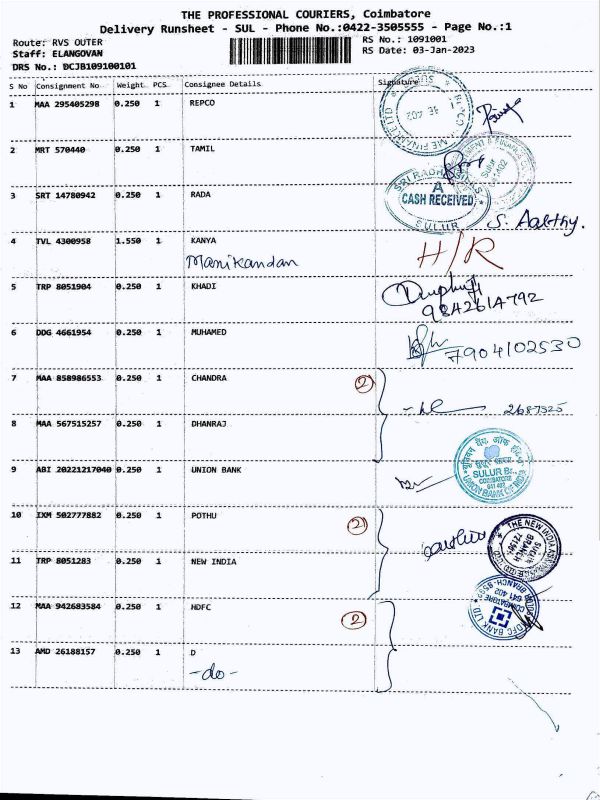 THE PROFESSIONAL COURIERS, Coimbatore
Delivery Runsheet - SUL - Phone No.:0422-3505555 - Page No.:1
Route: RVS OUTER
RS No.: 1091001
Staff: ELANGOVAN
RS Date: 03-Jan-2023
DRS No.: DCJB109100101
S No Consignment No Weight PCS Consignee Details Signature
1 MAA 295405298 0.250 1 REPCO
2 MRT 570440 0.250 1 TAMIL
3 SRT 14780942 0.250 1 RADA
CASH RECEIVED
SULUR
S. Aabthy.
4 TVL 4300958 1.550 1 KANYA
Manikandan
H/R
5 TRP 8051904 0.250 1 KHADI
9842614792
6 DDG 4661954 0.250 1 MUHAMED
7904102530
7 MAA 858986553 0.250 1 CHANDRA
2
2687525
8 MAA 567515257 0.250 1 DHANRAJ
9 ABI 20221217040 0.250 1 UNION BANK
SULUR Br.,
COIMBATORE
641 402
UNION BANK OF INDIA
10 IXM 502777882 0.250 1 POTHU
2
11 TRP 8051283 0.250 1 NEW INDIA
12 MAA 942683584 0.250 1 HDFC
2
HDFC BANK LTD
COIMBATORE
641 402
13 AMD 26188157 0.250 1 D
-do-